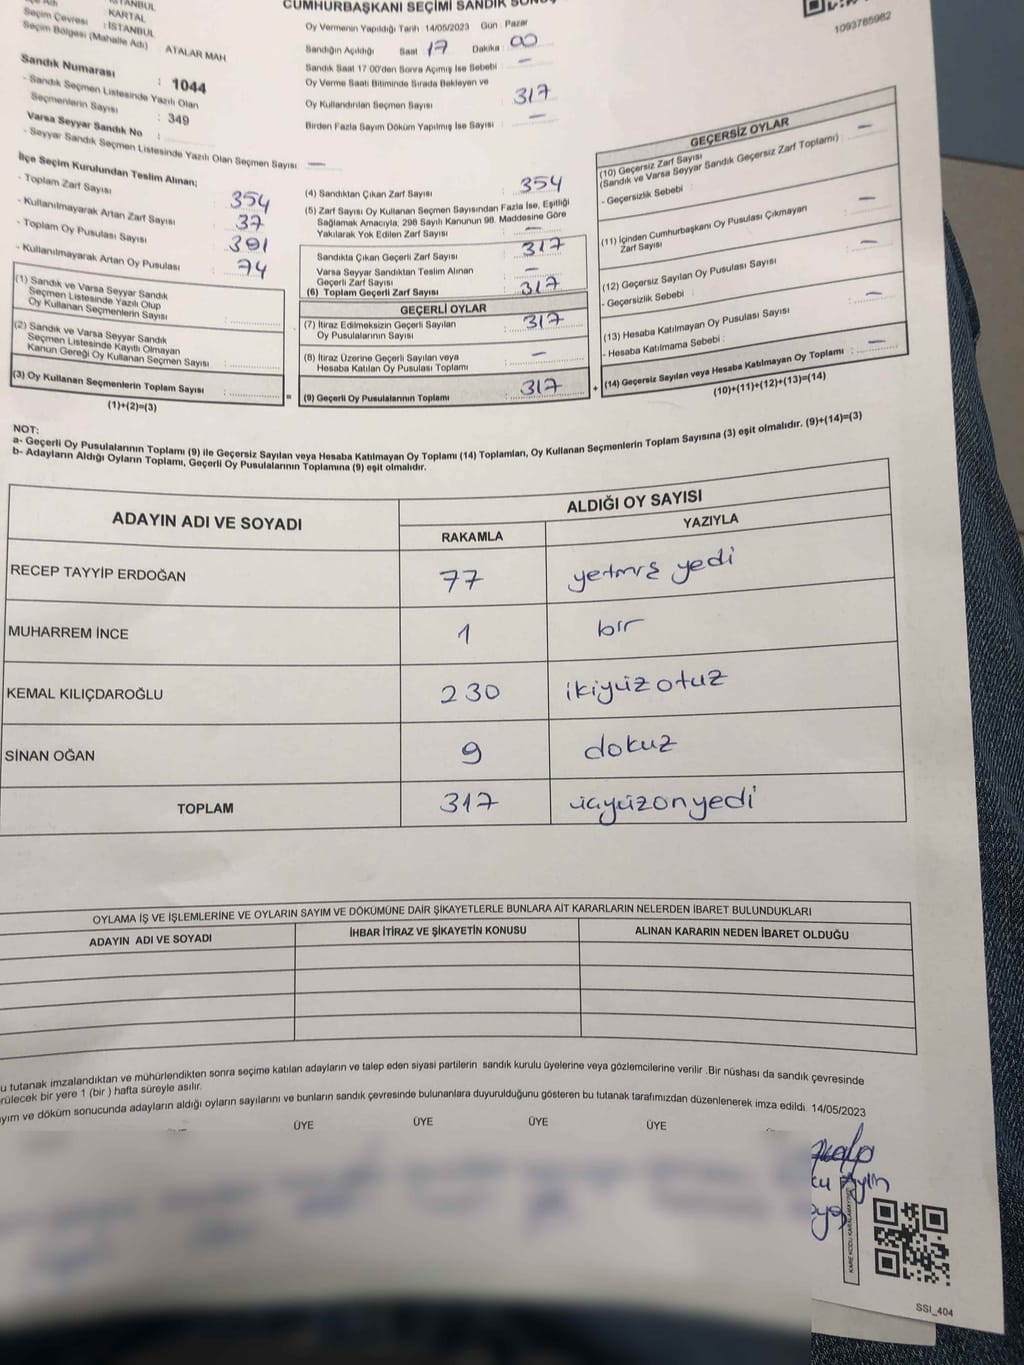 CUMHURBAŞKANI SEÇİMİ SANDIK
İSTANBUL
Seçim Çevresi : KARTAL
Seçim Bölgesi (Mahalle Adı) : İSTANBUL
ATALAR MAH
Sandık Numarası : 1044
- Sandık Seçmen Listesinde Yazılı Olan Seçmenlerin Sayısı : 349
Varsa Seyyar Sandık No :
- Seyyar Sandık Seçmen Listesinde Yazılı Olan Seçmen Sayısı —
Oy Vermenin Yapıldığı Tarih 14/05/2023 Gün : Pazar
Sandığın Açıldığı Saat 17 Dakika : 00
Sandık Saat 17 00'den Sonra Açımış İse Sebebi : —
Oy Verme Saati Bitiminde Sırada Bekleyen ve
Oy Kullandırılan Seçmen Sayısı : 317
Birden Fazla Sayım Döküm Yapılmış İse Sayısı : —
1093785982
İlçe Seçim Kurulundan Teslim Alınan;
- Toplam Zarf Sayısı : 354
- Kullanılmayarak Artan Zarf Sayısı : 37
- Toplam Oy Pusulası Sayısı : 391
- Kullanılmayarak Artan Oy Pusulası : 74
(1) Sandık ve Varsa Seyyar Sandık
Seçmen Listesinde Yazılı Olup
Oy Kullanan Seçmenlerin Sayısı :
(2) Sandık ve Varsa Seyyar Sandık
Seçmen Listesinde Kayıtlı Olmayan
Kanun Gereği Oy Kullanan Seçmen Sayısı :
(3) Oy Kullanan Seçmenlerin Toplam Sayısı :
(1)+(2)=(3)
=
(4) Sandıktan Çıkan Zarf Sayısı : 354
(5) Zarf Sayısı Oy Kullanan Seçmen Sayısından Fazla İse, Eşitliği
Sağlamak Amacıyla, 298 Sayılı Kanunun 98. Maddesine Göre
Yakılarak Yok Edilen Zarf Sayısı : —
Sandıkta Çıkan Geçerli Zarf Sayısı : 317
Varsa Seyyar Sandıktan Teslim Alınan
Geçerli Zarf Sayısı : —
(6) Toplam Geçerli Zarf Sayısı : 317
GEÇERLİ OYLAR
(7) İtiraz Edilmeksizin Geçerli Sayılan
Oy Pusulalarının Sayısı : 317
(8) İtiraz Üzerine Geçerli Sayılan veya
Hesaba Katılan Oy Pusulası Toplamı : —
(9) Geçerli Oy Pusulalarının Toplamı : 317
+
GEÇERSİZ OYLAR
(10) Geçersiz Zarf Sayısı : —
(Sandık ve Varsa Seyyar Sandık Geçersiz Zarf Toplamı)
- Geçersizlik Sebebi :
(11) İçinden Cumhurbaşkanı Oy Pusulası Çıkmayan
Zarf Sayısı : —
(12) Geçersiz Sayılan Oy Pusulası Sayısı : —
- Geçersizlik Sebebi :
(13) Hesaba Katılmayan Oy Pusulası Sayısı : —
- Hesaba Katılmama Sebebi :
(14) Geçersiz Sayılan veya Hesaba Katılmayan Oy Toplamı : —
(10)+(11)+(12)+(13)=(14)
NOT:
a- Geçerli Oy Pusulalarının Toplamı (9) ile Geçersiz Sayılan veya Hesaba Katılmayan Oy Toplamı (14) Toplamları, Oy Kullanan Seçmenlerin Toplam Sayısına (3) eşit olmalıdır. (9)+(14)=(3)
b- Adayların Aldığı Oyların Toplamı, Geçerli Oy Pusulalarının Toplamına (9) eşit olmalıdır.
ADAYIN ADI VE SOYADI
ALDIĞI OY SAYISI
RAKAMLA YAZIYLA
RECEP TAYYİP ERDOĞAN 77 yetmiş yedi
MUHARREM İNCE 1 bir
KEMAL KILIÇDAROĞLU 230 ikiyüz otuz
SİNAN OĞAN 9 dokuz
TOPLAM 317 üçyüzonyedi
OYLAMA İŞ VE İŞLEMLERİNE VE OYLARIN SAYIM VE DÖKÜMÜNE DAİR ŞİKAYETLERLE BUNLARA AİT KARARLARIN NELERDEN İBARET BULUNDUKLARI
ADAYIN ADI VE SOYADI İHBAR İTİRAZ VE ŞİKAYETİN KONUSU ALINAN KARARIN NEDEN İBARET OLDUĞU
u tutanak imzalandıktan ve mühürlendikten sonra seçime katılan adayların ve talep eden siyasi partilerin sandık kurulu üyelerine veya gözlemcilerine verilir .Bir nüshası da sandık çevresinde
rülecek bir yere 1 (bir ) hafta süreyle asılır.
ayım ve döküm sonucunda adayların aldığı oyların sayılarını ve bunların sandık çevresinde bulunanlara duyurulduğunu gösteren bu tutanak tarafımızdan düzenlenerek imza edildi. 14/05/2023
ÜYE ÜYE ÜYE ÜYE
Aylin
SSI_404